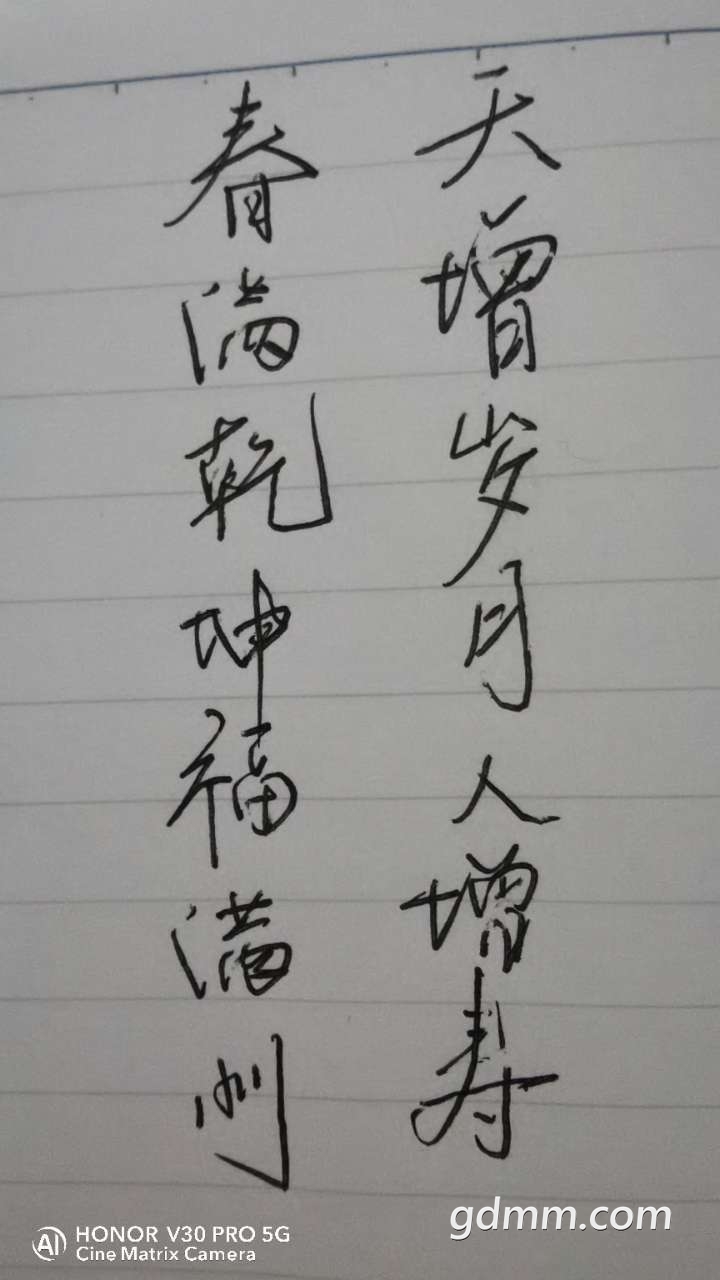 天增岁月人增寿
春满乾坤福满门
HONOR V30 PRO 5G
Cine Matrix Camera
AI
gdmm.com